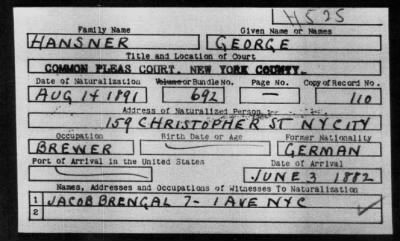 H525
Family Name Given Name or Names
HANSNER GEORGE
Title and Location of Court
COMMON PLEAS COURT, NEW YORK COUNTY.
Date of Naturalization Volume or Bundle No. Page No. Copy of Record No.
AUG 14 1891 692 — 110
Address of Naturalized Person
159 CHRISTOPHER ST NY CITY
Occupation Birth Date or Age Former Nationality
BREWER GERMAN
Port of Arrival in the United States Date of Arrival
JUNE 3 1882
Names, Addresses and Occupations of Witnesses To Naturalization
1 JACOB BRENGAL 7- 1 AVE NYC
2